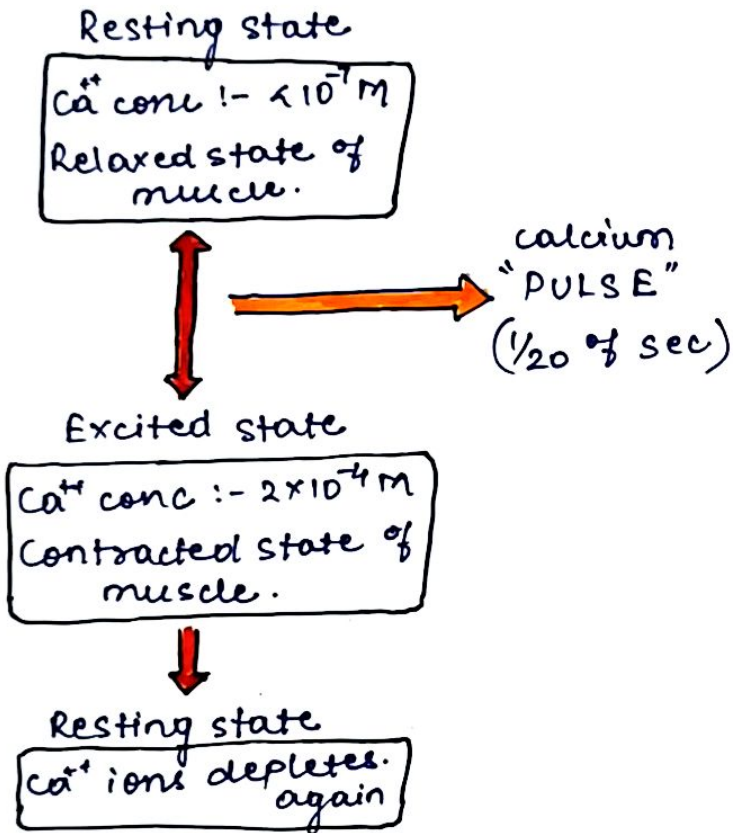 Resting state
Ca⁺⁺ conc :- <10⁻⁷ M
Relaxed state of
muscle.
calcium
"PULSE"
(1/20 of sec)
Excited state
Ca⁺⁺ conc :- 2×10⁻⁴ M
Contracted state of
muscle.
Resting state
Ca⁺⁺ ions depletes.
again